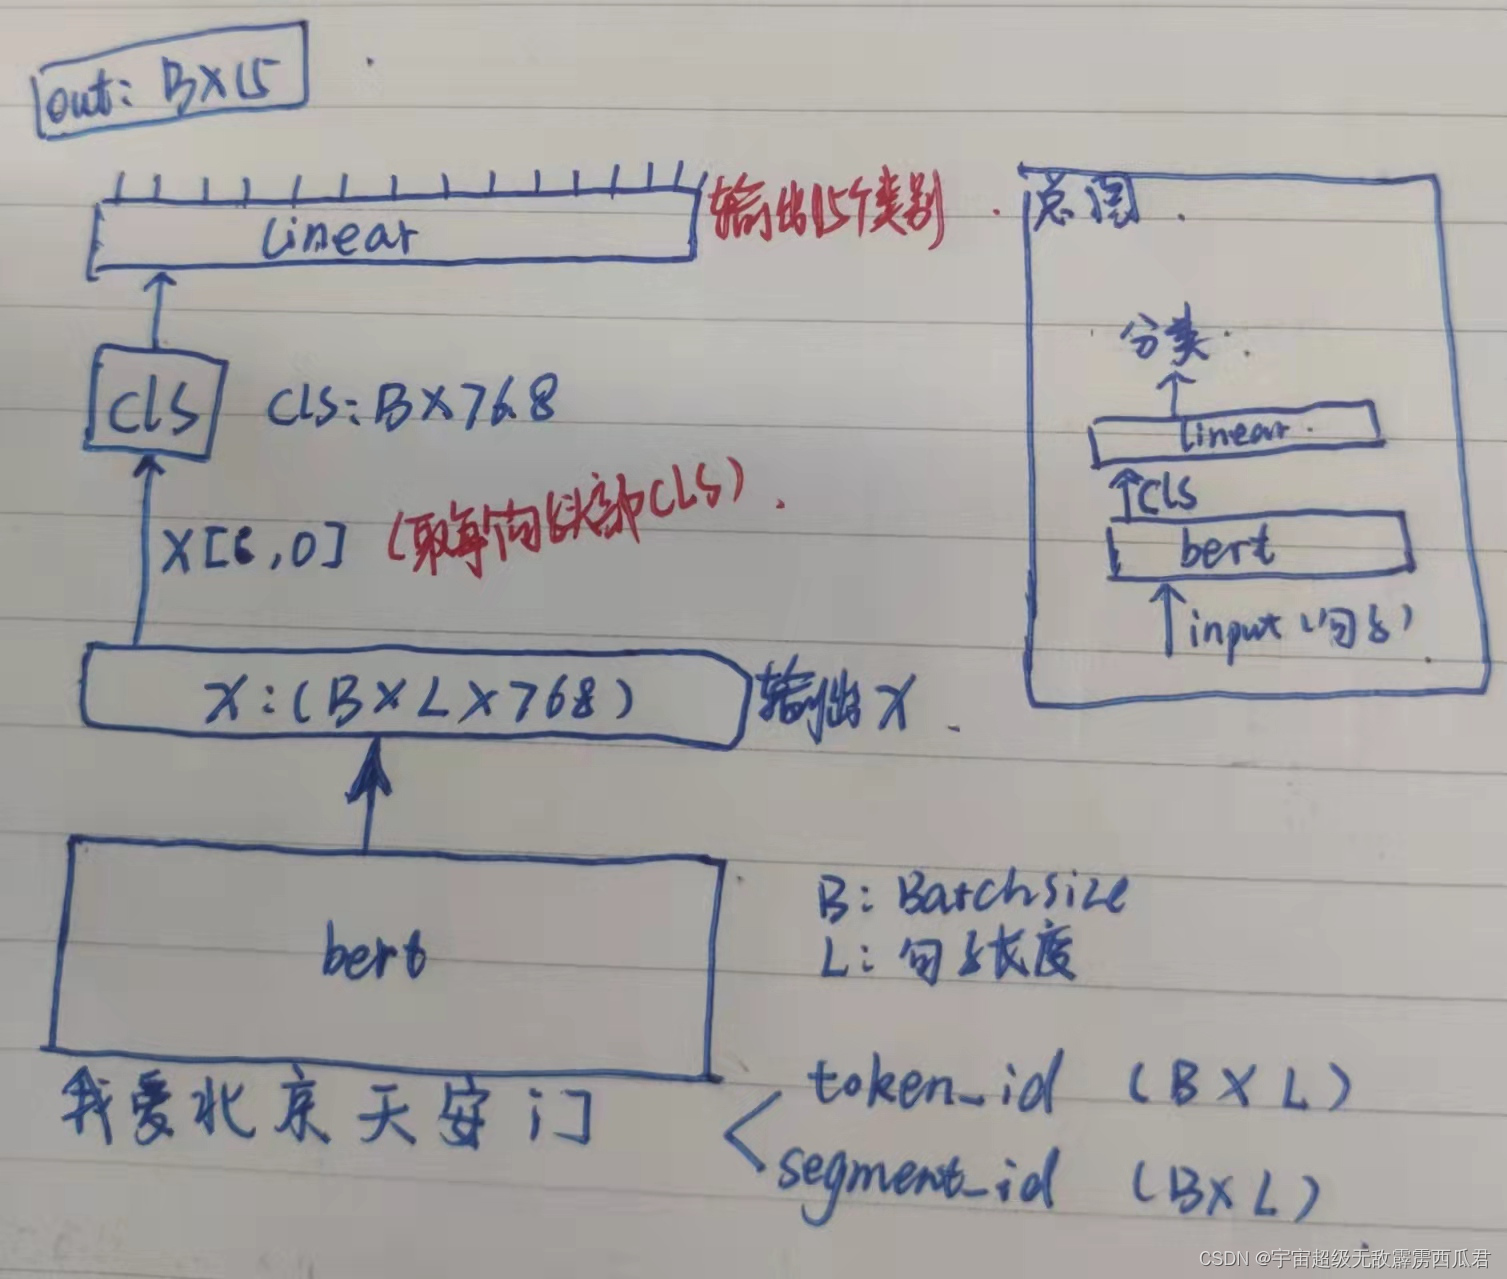 out: B×15
linear
输出15个类别
cls
cls: B×768
X[:,0]
(取每句头部CLS)
X:(B×L×768)
输出X
bert
B: Batchsize
L: 句子长度
我爱北京天安门
token_id (B×L)
segment_id (B×L)
总图
分类
linear
cls
bert
input (句子)
CSDN @宇宙超级无敌霹雳西瓜君